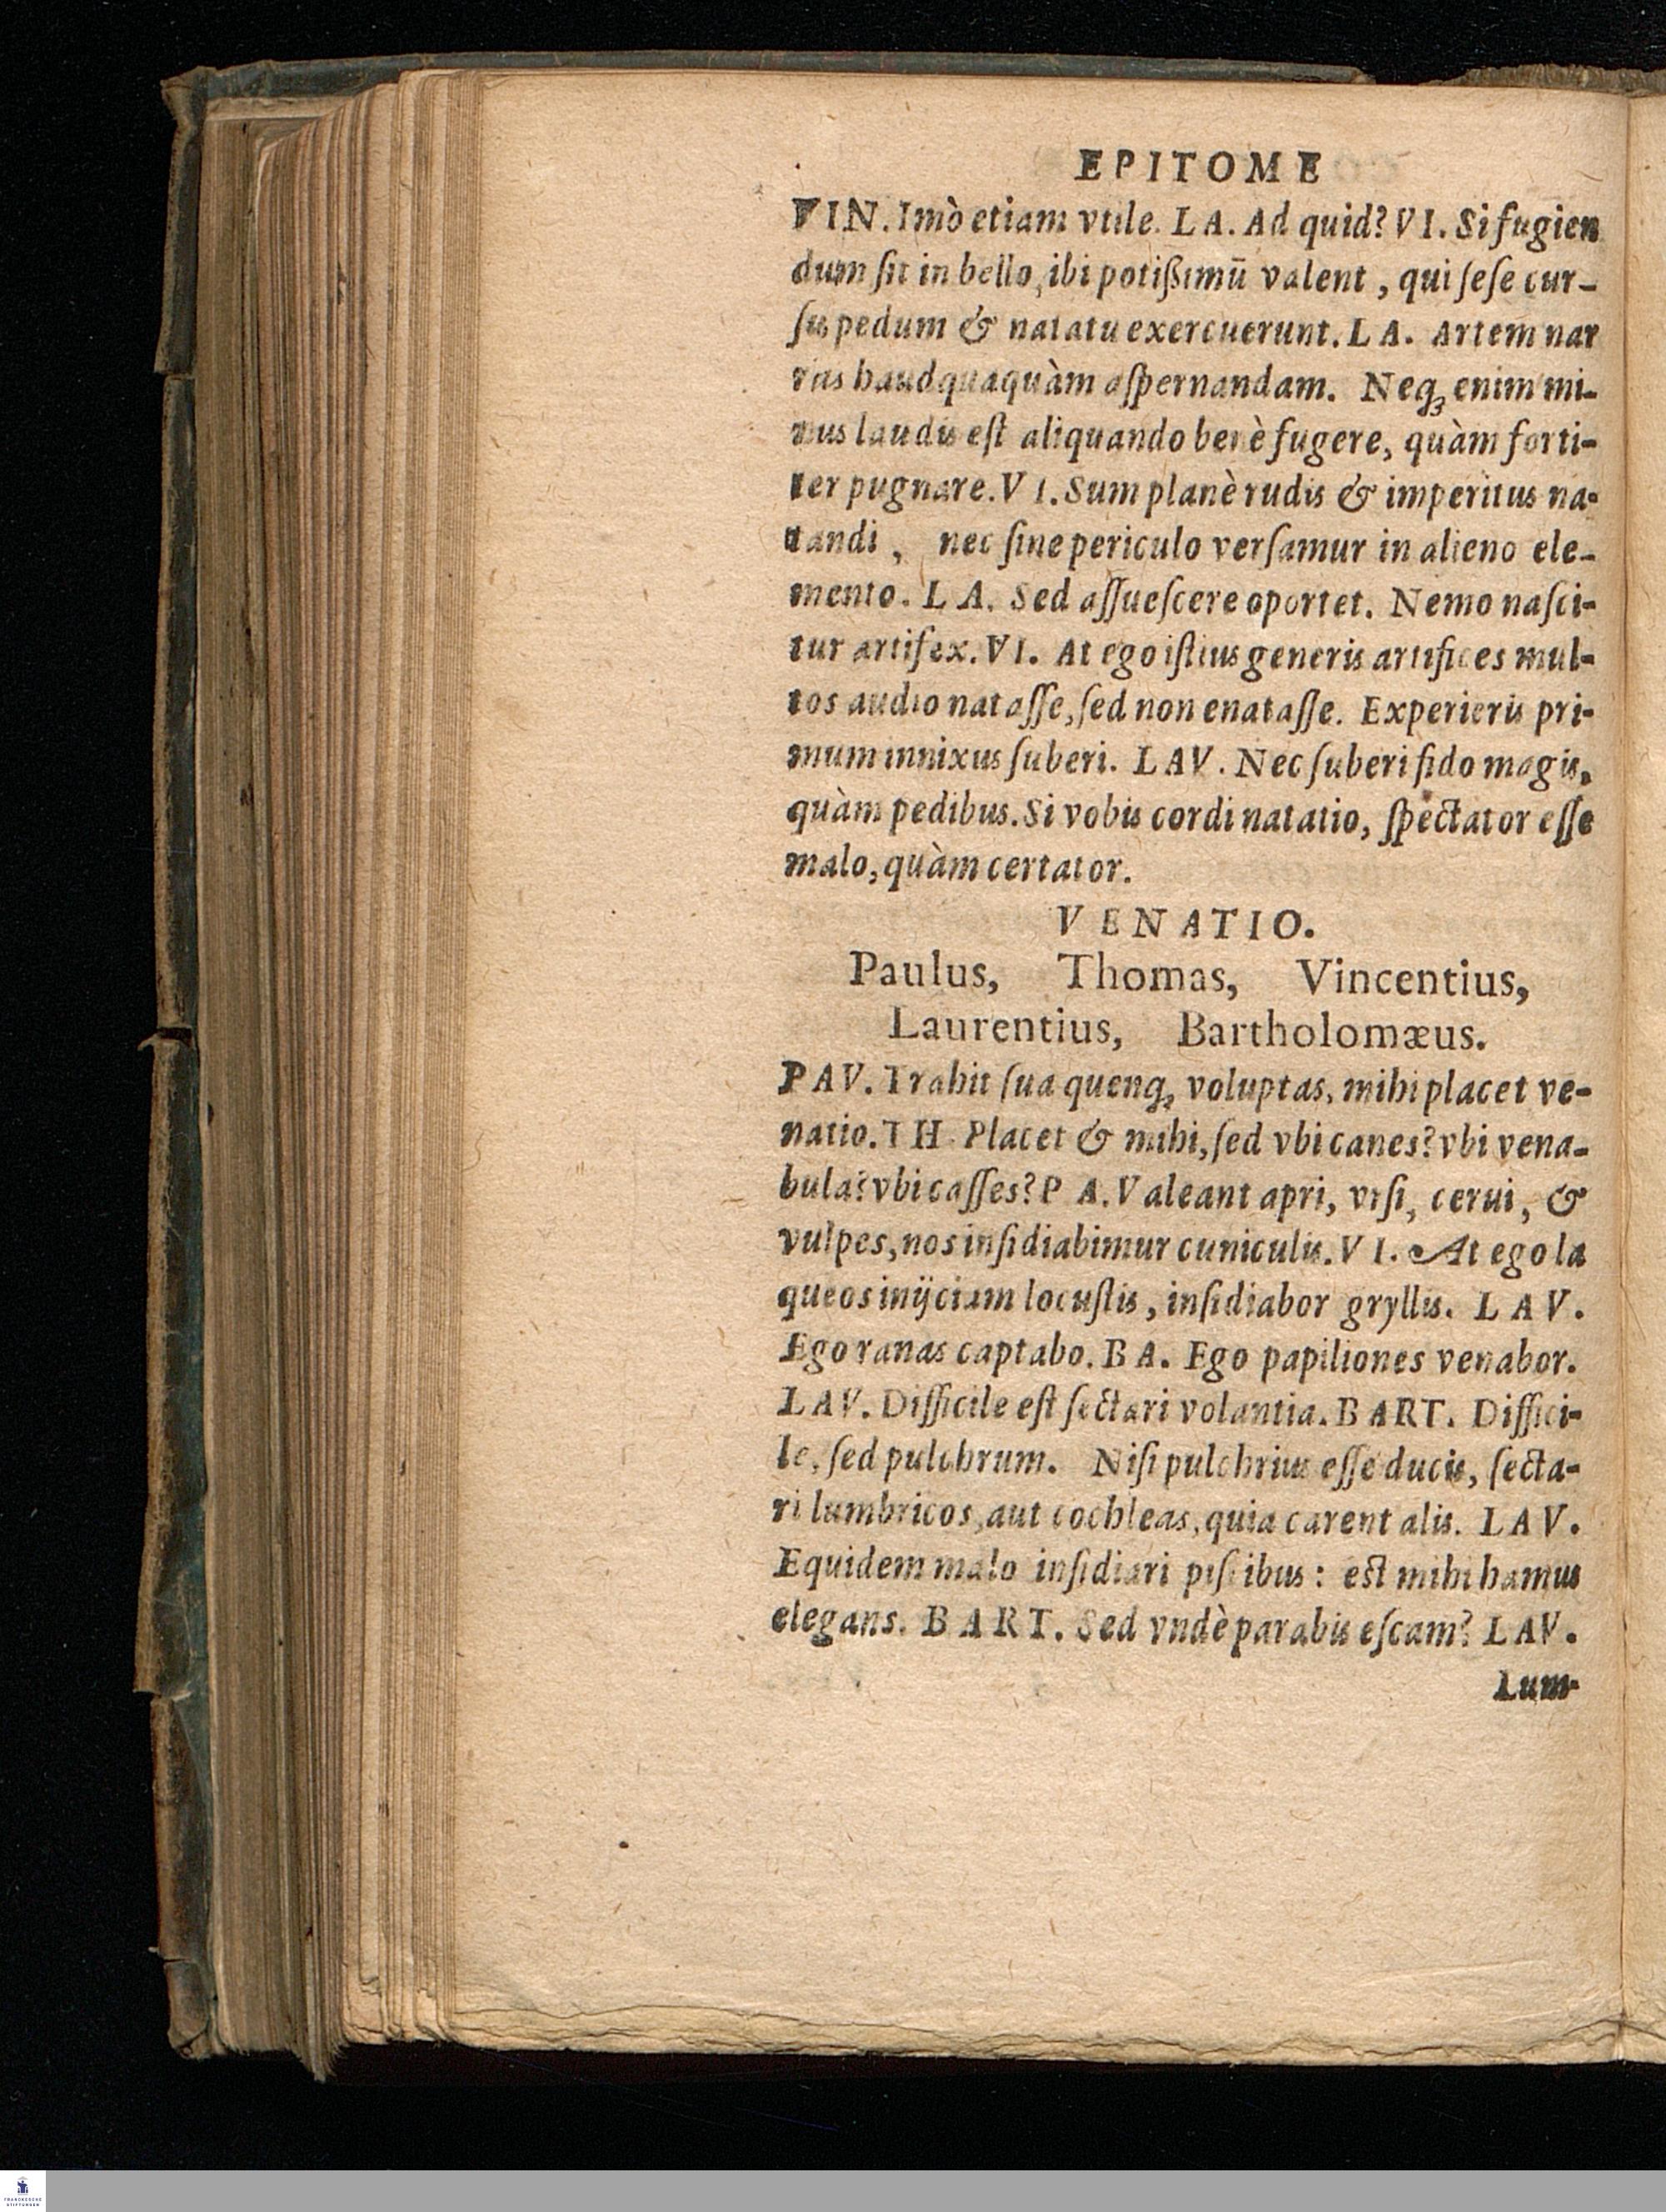 EPITOME
VIN. Imò etiam vtile. LA. Ad quid? VI. Si fugien
dum ſit in bello, ibi potißimũ valent, qui ſeſe cur-
ſu pedum & natatu exercuerunt. LA. Artem nar
ras haudquaquàm aſpernandam. Neq; enim mi-
nus laudis eſt aliquando benè fugere, quàm forti-
ter pugnare. VI. Sum planè rudis & imperitus na-
tandi, nec ſine periculo verſamur in alieno ele-
mento. LA. Sed aſſueſcere oportet. Nemo naſci-
tur artifex. VI. At ego iſtius generis artifices mul-
tos audio nataſſe, ſed non enataſſe. Experieris pri-
mum innixus ſuberi. LAV. Nec ſuberi fido magis,
quàm pedibus. Si vobis cordi natatio, ſpectator eſſe
malo, quàm certator.
VENATIO.
Paulus, Thomas, Vincentius,
Laurentius, Bartholomæus.
PAV. Trahit ſua quenq; voluptas, mihi placet ve-
natio. TH. Placet & mihi, ſed vbi canes? vbi vena-
bula? vbi caſſes? PA. Valeant apri, vrſi, cerui, &
vulpes, nos inſidiabimur cuniculis. VI. At ego la
queos inijciam locuſtis, inſidiabor gryllis. LAV.
Ego ranas captabo. BA. Ego papiliones venabor.
LAV. Difficile eſt ſectari volantia. BART. Diffici-
le, ſed pulchrum. Niſi pulchrius eſſe ducis, ſecta-
ri lumbricos, aut cochleas, quia carent alis. LAV.
Equidem malo inſidiari piſcibus: eſt mihi hamus
elegans. BART. Sed vndè parabis eſcam? LAV.
Lum-
FRANCKESCHE
STIFTUNGEN